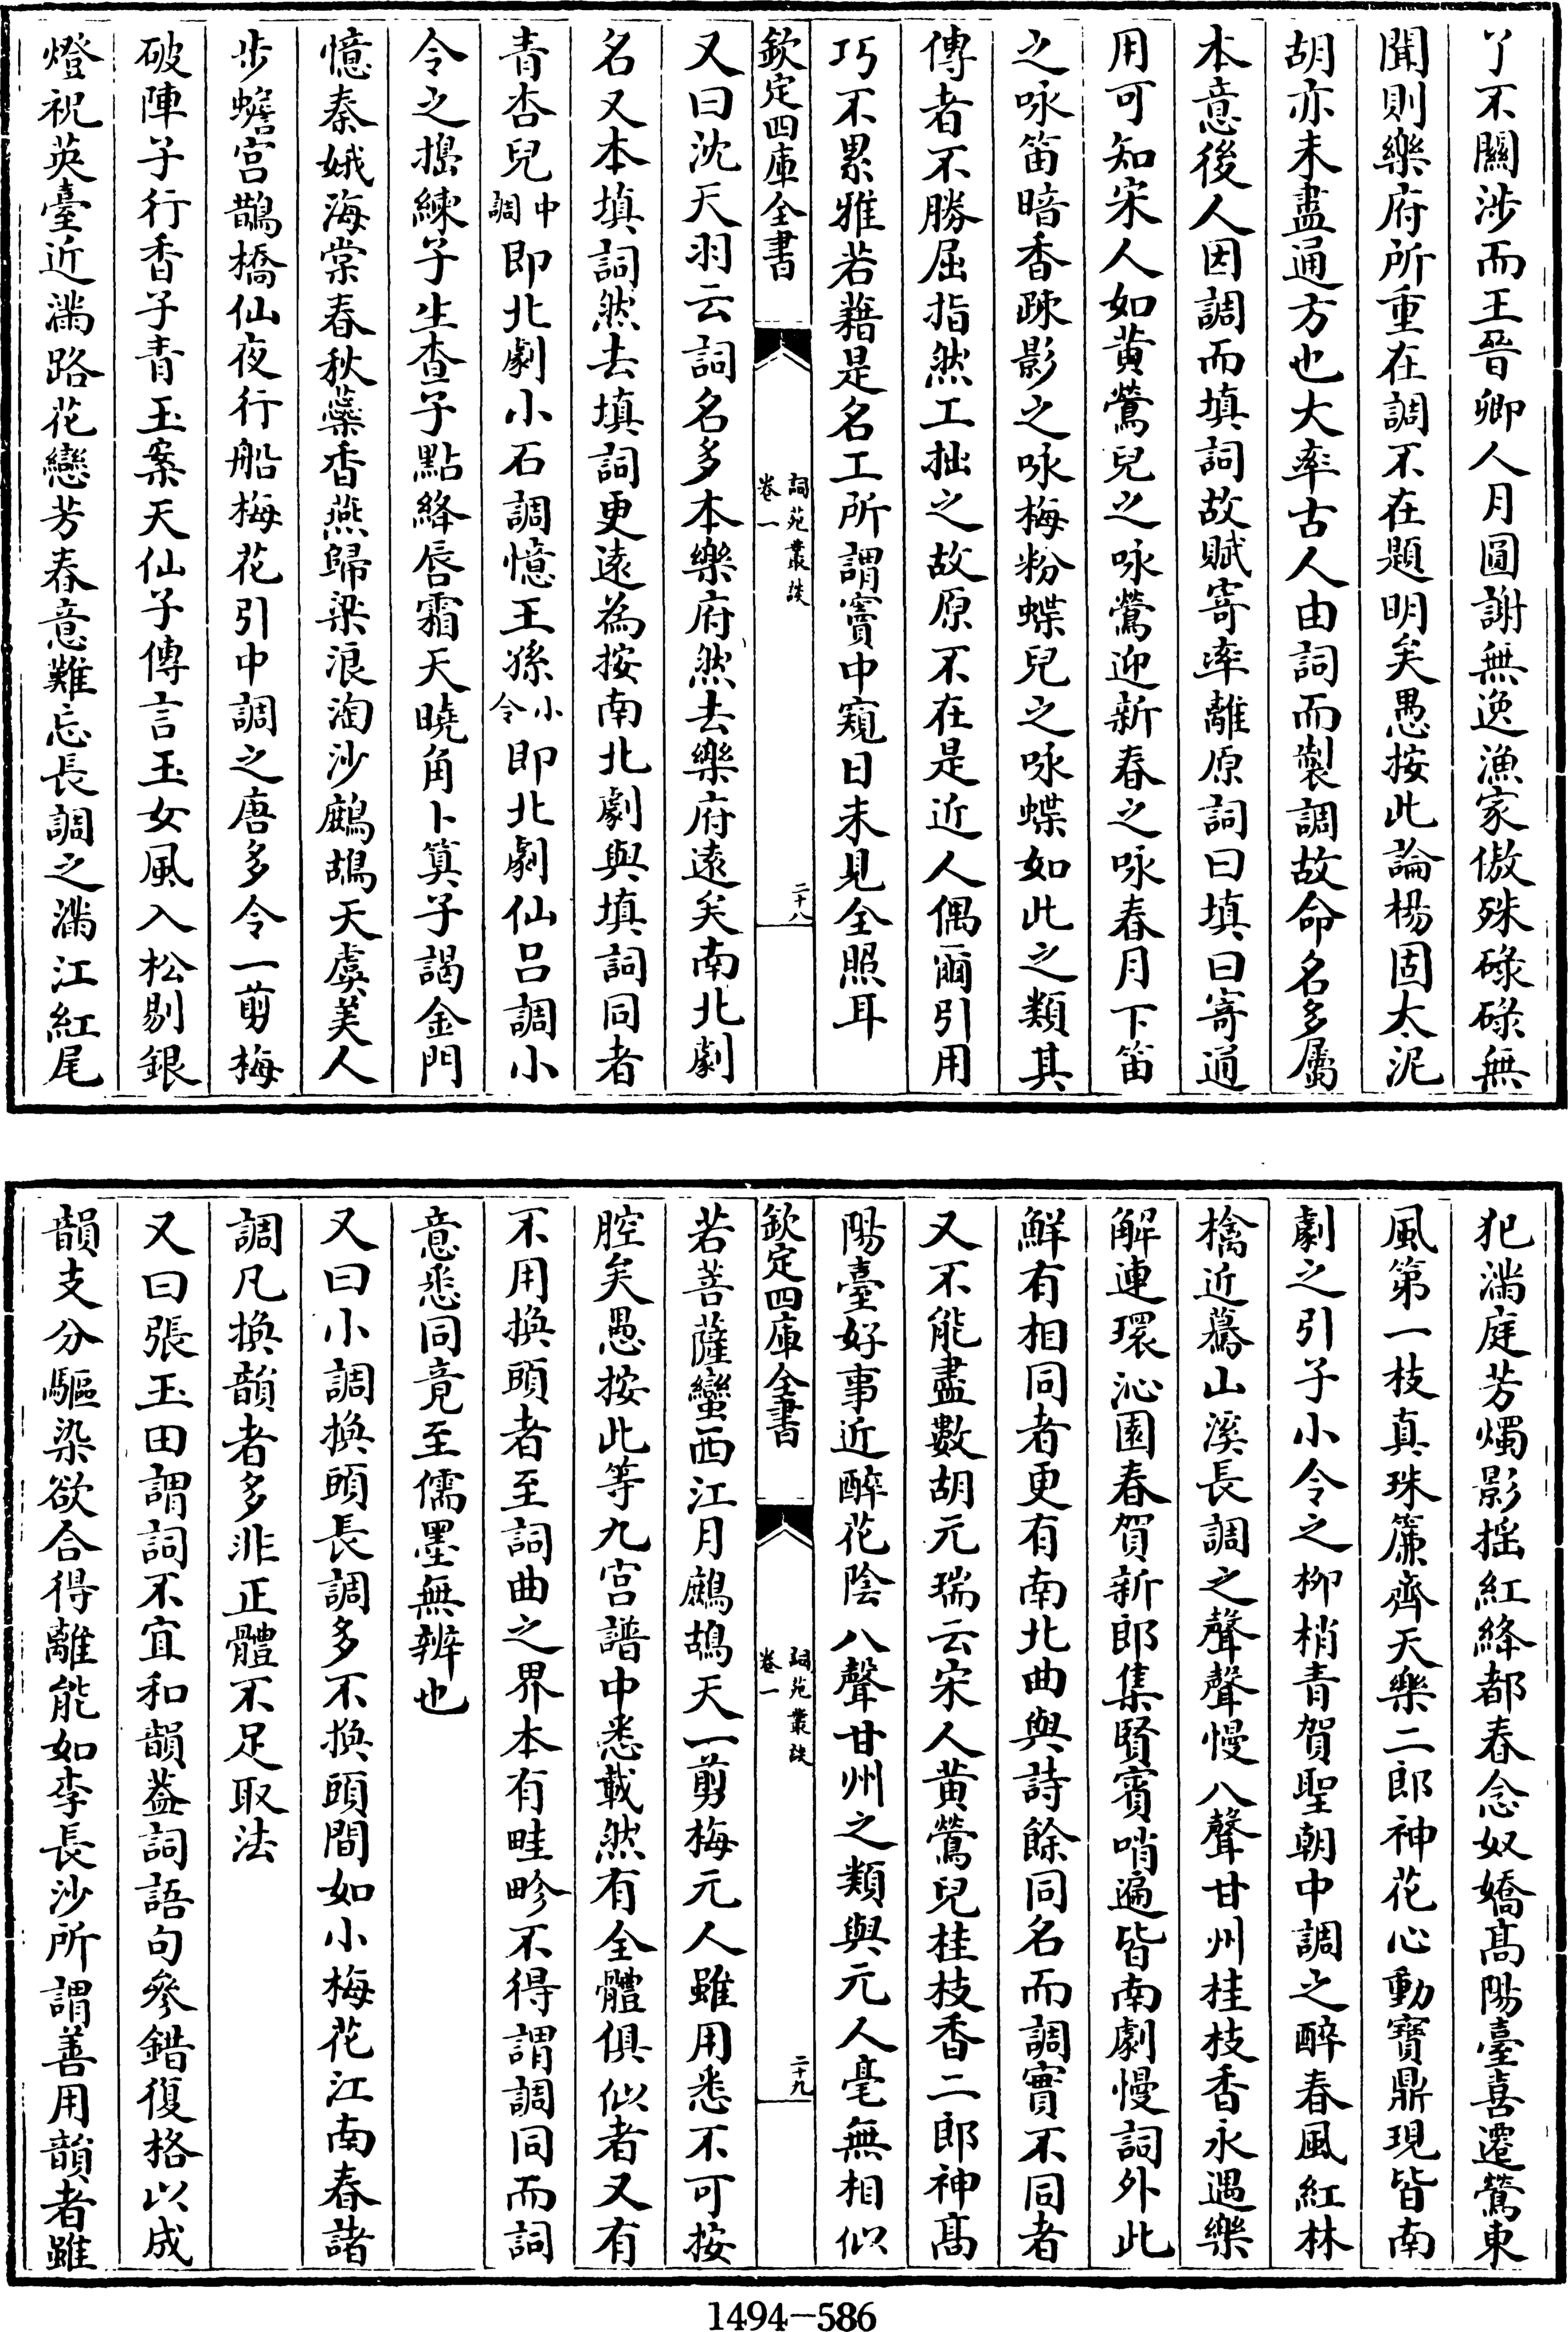 丫不關涉而王晉卿人月圓謝無逸漁家傲殊碌碌無
聞則樂府所重在調不在題明矣愚按此論楊固太泥
胡亦未盡通方也大率古人由詞而製調故命名多屬
本意後人因調而填詞故賦寄率離原詞曰填曰寄通
用可知宋人如黄鶯兒之咏鶯迎新春之咏春月下笛
之咏笛暗香疎影之咏梅粉蝶兒之咏蝶如此之類其
傳者不勝屈指然工拙之故原不在是近人偶爾引用
巧不累雅若藉是名工所謂竇中窺日未見全照耳
欽定四庫全書
詞苑叢談
卷一
二十八
又曰沈天羽云詞名多本樂府然去樂府遠矣南北劇
名又本填詞然去填詞更遠為按南北劇與填詞同者
青杏兒中調即北劇小石調憶王孫小令即北劇仙吕調小
令之搗練子生查子點絳唇霜天曉角卜算子謁金門
憶秦娥海棠春秋蘂香燕歸梁浪淘沙鷓鴣天虞美人
步蟾宫鵲橋仙夜行船梅花引中調之唐多令一剪梅
破陣子行香子青玉案天仙子傳言玉女風入松剔銀
燈祝英臺近滿路花戀芳春意難忘長調之滿江紅尾
犯滿庭芳燭影揺紅絳都春念奴嬌髙陽臺喜遷鶯東
風第一枝真珠簾齊天樂二郎神花心動寶鼎現皆南
劇之引子小令之柳梢青賀聖朝中調之醉春風紅林
檎近驀山溪長調之聲聲慢八聲甘州桂枝香永遇樂
解連環沁園春賀新郎集賢賓哨遍皆南劇慢詞外此
鮮有相同者更有南北曲與詩餘同名而調實不同者
又不能盡數胡元瑞云宋人黄鶯兒桂枝香二郎神髙
陽臺好事近醉花陰八聲甘州之類與元人毫無相似
欽定四庫全書
詞苑叢談
卷一
二十九
若菩薩蠻西江月鷓鴣天一剪梅元人雖用悉不可按
腔矣愚按此等九宫譜中悉載然有全體俱似者又有
不用換頭者至詞曲之界本有畦畛不得謂調同而詞
意悉同竟至儒墨無辨也
又曰小調換頭長調多不換頭間如小梅花江南春諸
調凡換韻者多非正體不足取法
又曰張玉田謂詞不宜和韻葢詞語句參錯復格以成
韻支分驅染欲合得離能如李長沙所謂善用韻者雖
1494-586